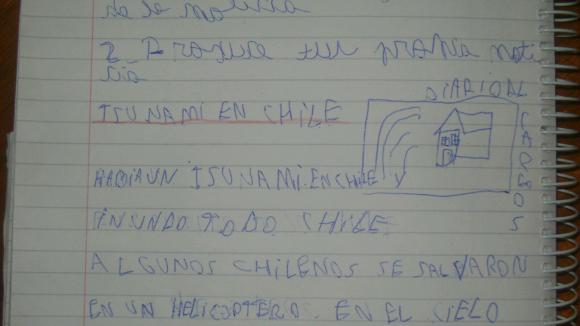 de la noticia
2_Produce tu propia noti
cia
DIARIO AL
TSUNAMI EN CHILE
HABIA UN TSUNAMI.EN CHILE
INUNDO TODO CHILE
ALGUNOS CHILENOS SE SALVARON
EN UN HELICOPTERO. EN EL CIELO